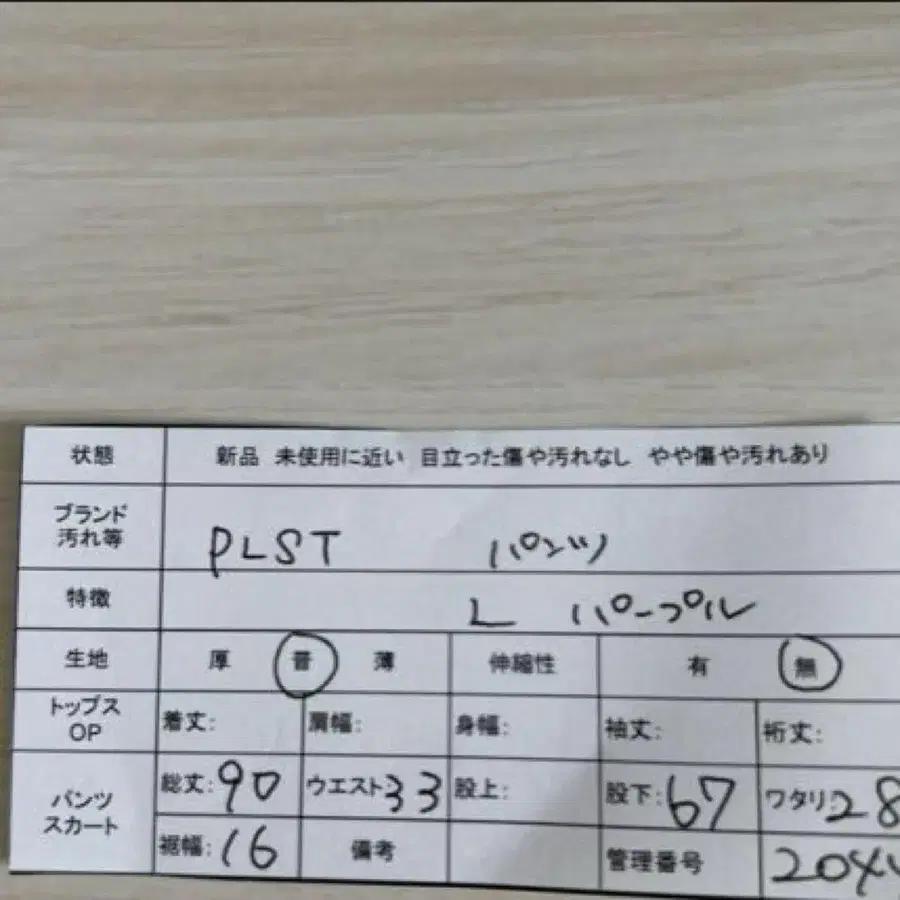 状態 新品 未使用に近い 目立った傷や汚れなし やや傷や汚れあり
ブランド
汚れ等
PLST パンツ
特徴 L パープル
生地 厚 普 薄 伸縮性 有 無
トップス
OP
着丈: 肩幅: 身幅: 袖丈: 裄丈:
パンツ
スカート
総丈:90 ウエスト33 股上: 股下:67 ワタリ:28
裾幅:16 備考 管理番号 204